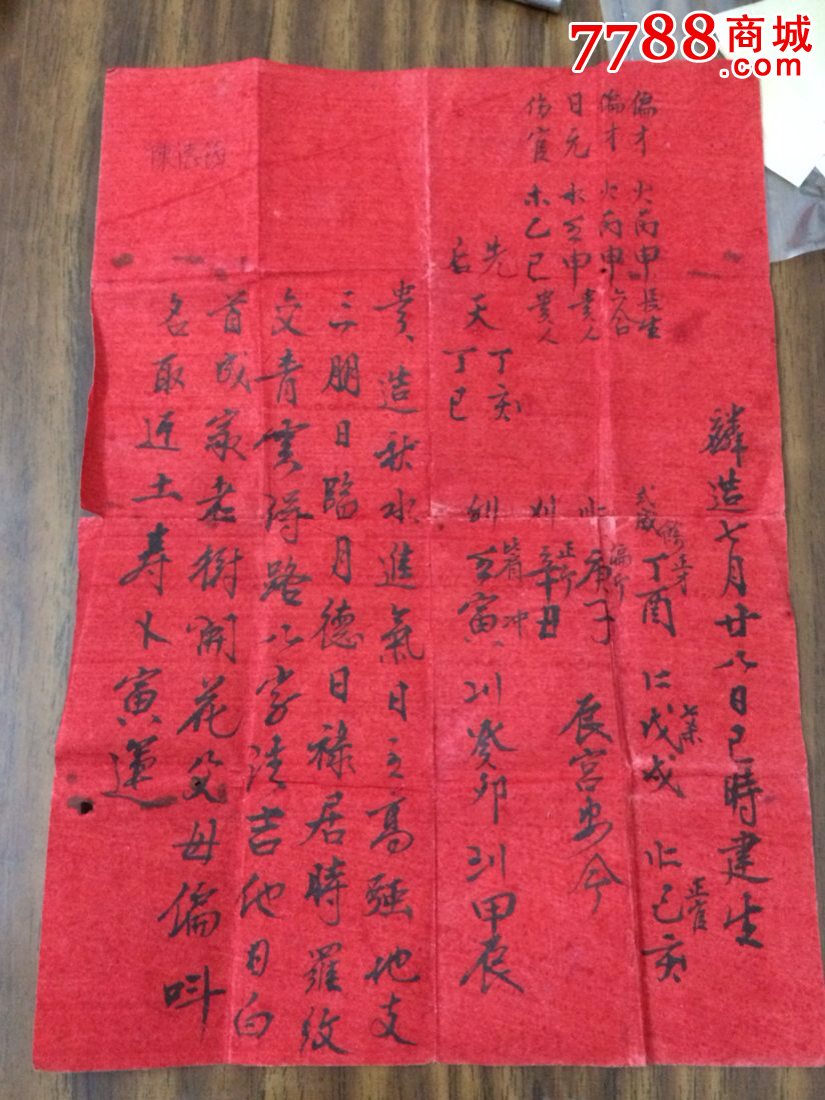 7788商城
.com
偏才 火丙申 長生
偏才 火丙申 六合
日元 水壬申 貴人
伤官 木乙巳 貴人
麟造七月廿八日巳時建生
丁酉 戊戌 己亥
正才 七杀 正官
庚子 辰宫安命
辛丑
壬寅 癸卯 甲辰
先天丁亥
后天丁巳
貴造秋水進氣日主高强地支
三朋日臨月德日禄居時羅紋
交青雲得路八字清吉他日白
首成家老樹開花父母偏叫
名取近土寿火寅運